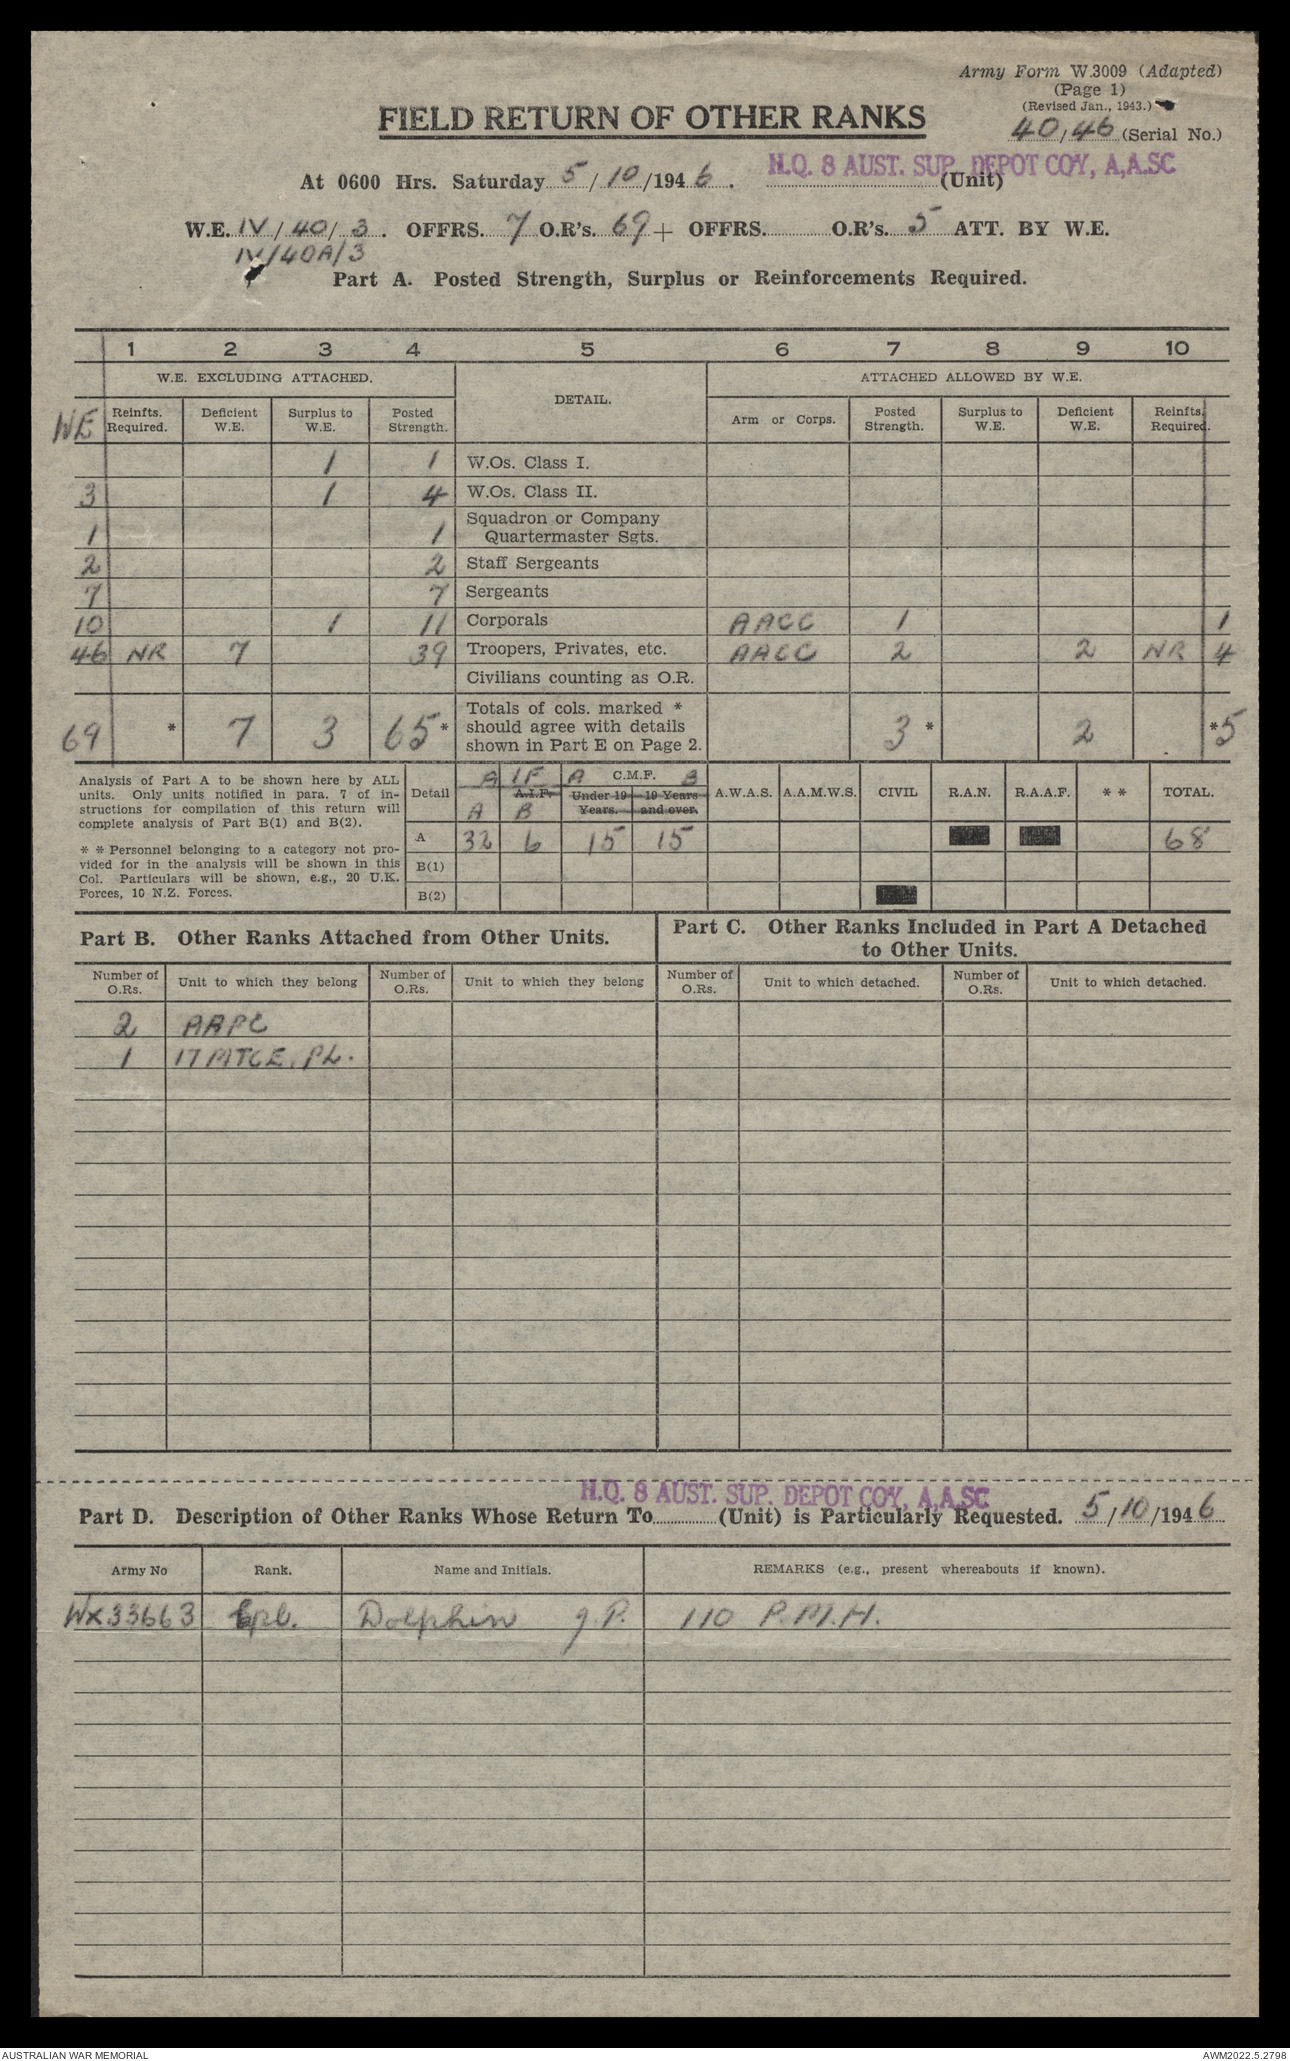 Army Form W.3009 (Adapted)
(Page 1)
(Revised Jan., 1943.)
FIELD RETURN OF OTHER RANKS
40/46 (Serial No.)
H.Q. 8 AUST. SUP. DEPOT COY, A,A.SC
At 0600 Hrs. Saturday 5/10/1946. (Unit)
W.E. IV/40/3. OFFRS. 7 O.R's. 69 + OFFRS. O.R's. 5 ATT. BY W.E.
IV/40A/3
Part A. Posted Strength, Surplus or Reinforcements Required.
1 2 3 4 5 6 7 8 9 10
W.E. EXCLUDING ATTACHED. DETAIL. ATTACHED ALLOWED BY W.E.
WE Reinfts. Required. Deficient W.E. Surplus to W.E. Posted Strength. Arm or Corps. Posted Strength. Surplus to W.E. Deficient W.E. Reinfts. Required.
1 1 W.Os. Class I.
3 1 4 W.Os. Class II.
1 1 Squadron or Company Quartermaster Sgts.
2 2 Staff Sergeants
7 7 Sergeants
10 1 11 Corporals AACC 1 1
46 NR 7 39 Troopers, Privates, etc. AACC 2 2 NR 4
Civilians counting as O.R.
69 * 7 3 65* Totals of cols. marked * should agree with details shown in Part E on Page 2. 3* 2 *5
Analysis of Part A to be shown here by ALL units. Only units notified in para. 7 of instructions for compilation of this return will complete analysis of Part B(1) and B(2).
* * Personnel belonging to a category not provided for in the analysis will be shown in this Col. Particulars will be shown, e.g., 20 U.K. Forces, 10 N.Z. Forces.
Detail A IF A C.M.F. B
A.I.F. Under 19 Years. 19 Years and over. A.W.A.S. A.A.M.W.S. CIVIL R.A.N. R.A.A.F. * * TOTAL.
A B
A 32 6 15 15 68
B(1)
B(2)
Part B. Other Ranks Attached from Other Units.
Part C. Other Ranks Included in Part A Detached to Other Units.
Number of O.Rs. Unit to which they belong Number of O.Rs. Unit to which they belong Number of O.Rs. Unit to which detached. Number of O.Rs. Unit to which detached.
2 AAPC
1 17 MTCE. PL.
H.Q. 8 AUST. SUP. DEPOT COY, A,A.SC
Part D. Description of Other Ranks Whose Return To (Unit) is Particularly Requested. 5/10/1946
Army No Rank. Name and Initials. REMARKS (e.g., present whereabouts if known).
WX33663 Cpl. Dolphin J.P. 110 P.M.H.
AUSTRALIAN WAR MEMORIAL
AWM2022.5.2798